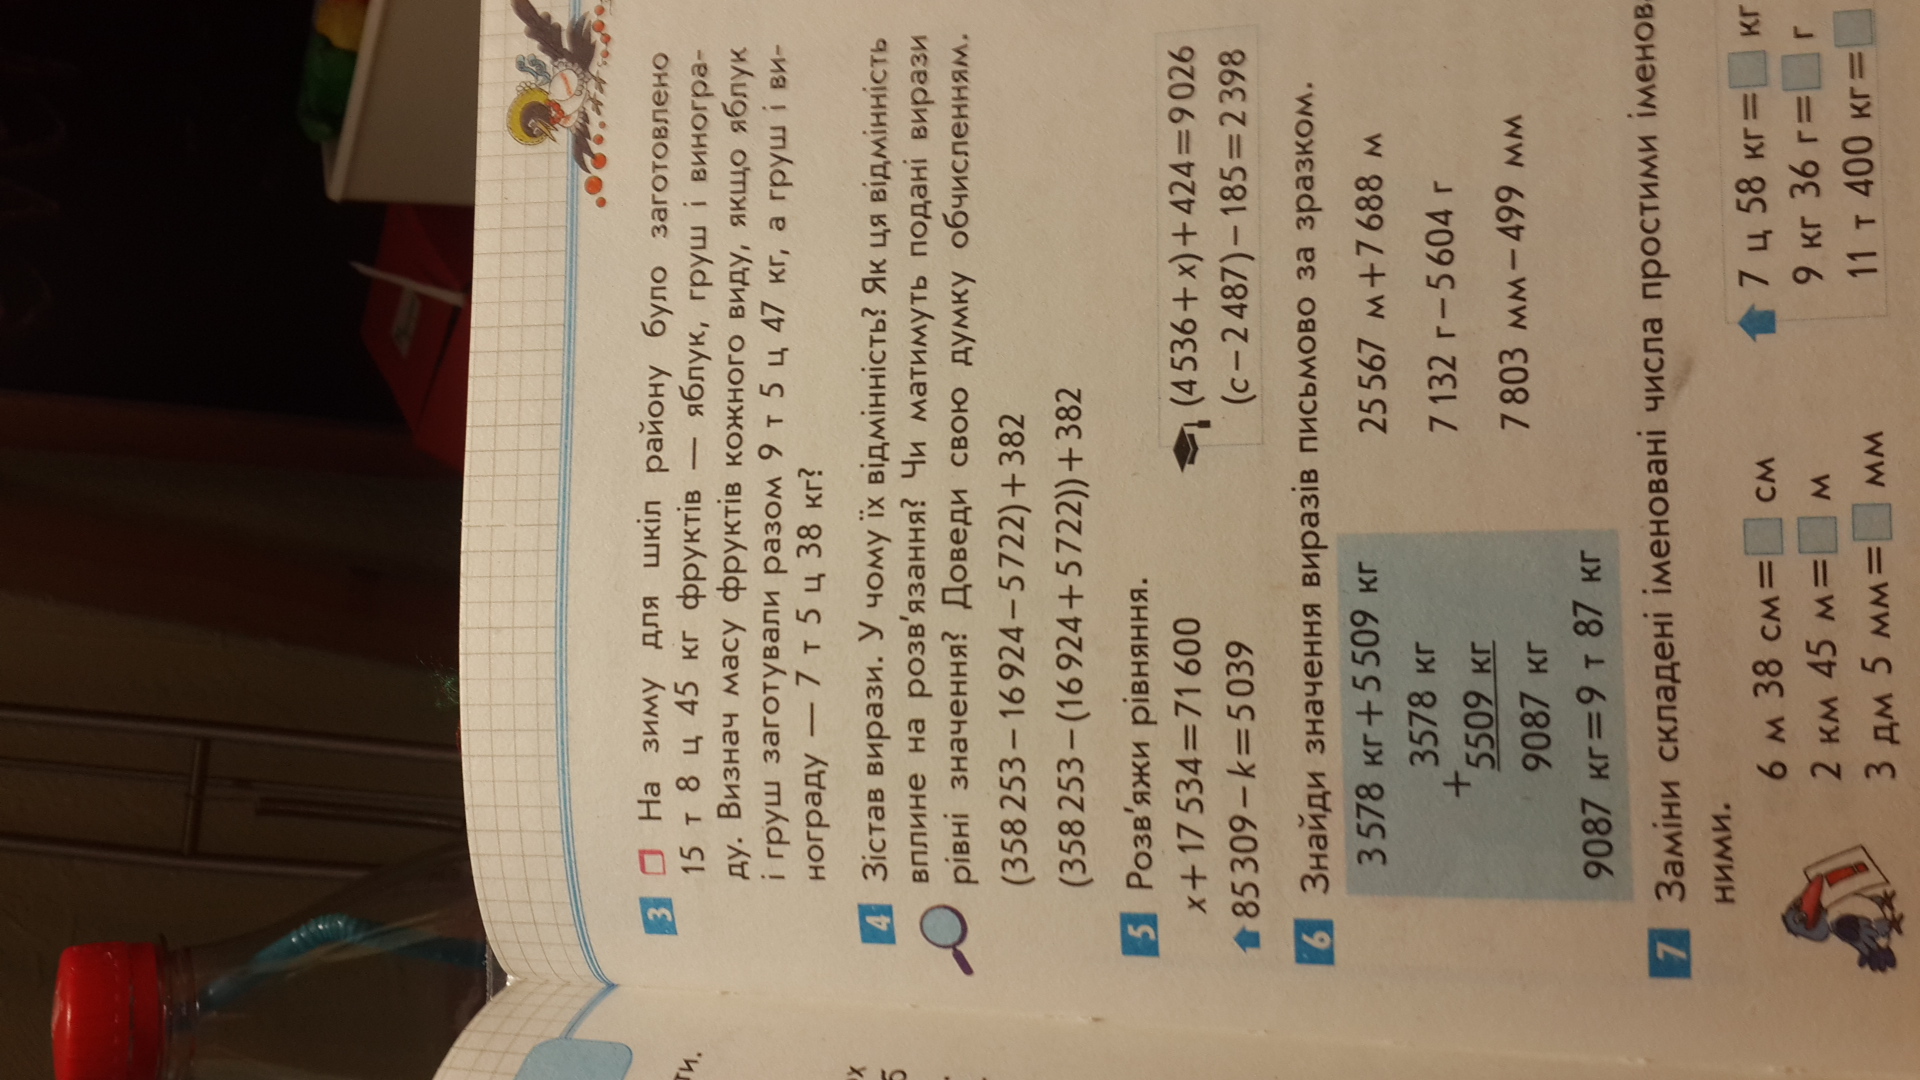 3 На зиму для шкіл району було заготовлено
15 т 8 ц 45 кг фруктів — яблук, груш і виногра-
ду. Визнач масу фруктів кожного виду, якщо яблук
і груш заготували разом 9 т 5 ц 47 кг, а груш і ви-
нограду — 7 т 5 ц 38 кг?
4 Зістав вирази. У чому їх відмінність? Як ця відмінність
вплине на розв'язання? Чи матимуть подані вирази
рівні значення? Доведи свою думку обчисленням.
(358 253 − 16 924 − 5722) + 382
(358 253 − (16 924 + 5 722)) + 382
5 Розв'яжи рівняння.
x + 17 534 = 71 600
85 309 − k = 5 039
(4 536 + x) + 424 = 9 026
(c − 2 487) − 185 = 2 398
6 Знайди значення виразів письмово за зразком.
3 578 кг + 5 509 кг
3578 кг
+
5509 кг
9087 кг
9087 кг = 9 т 87 кг
25 567 м + 7 688 м
7 132 г − 5 604 г
7 803 мм − 499 мм
7 Заміни складені іменовані числа простими іменов
ними.
6 м 38 см = см
2 км 45 м = м
3 дм 5 мм = мм
7 ц 58 кг = кг
9 кг 36 г = г
11 т 400 кг =
ти.